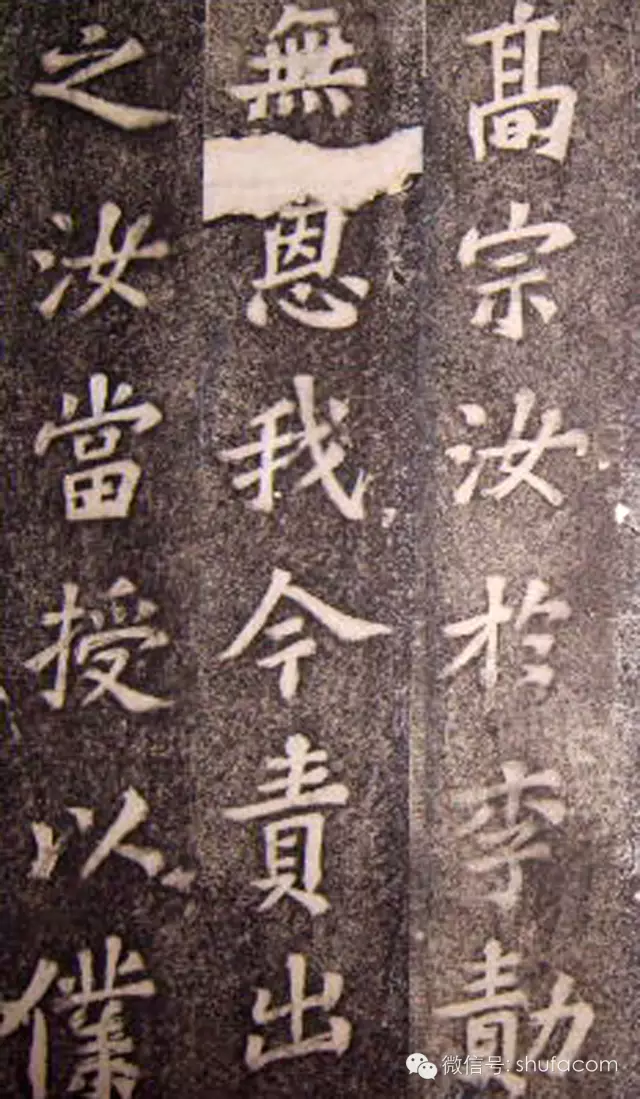 髙宗汝於李勣
無恩我今責出
之汝當授以僕
微信号: shufacom